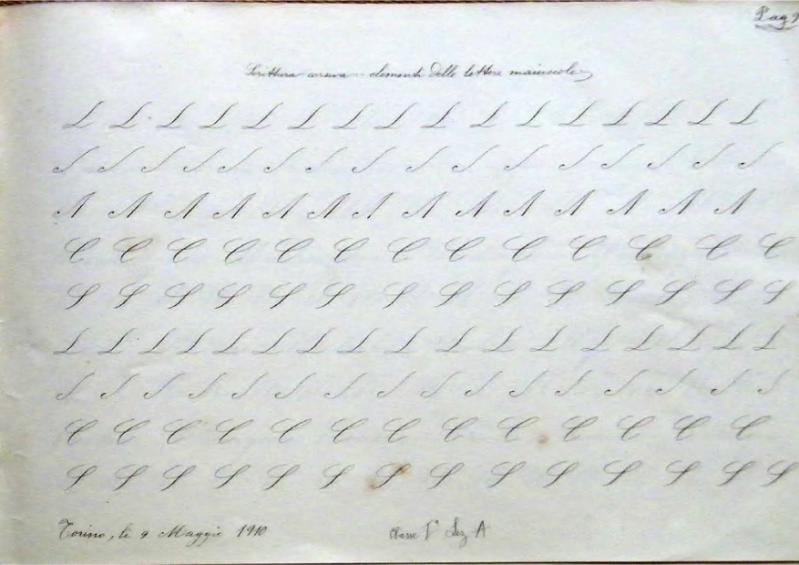 Pag
Scrittura corsiva - elementi delle lettere maiuscole
L L L L L L L L L L L L L L L L
S S S S S S S S S S S S S S S
A A A A A A A A A A A A A A
C C C C C C C C C C C C C
S S S S S S S S S S S S S S
L L L L L L L L L L L L L L L L
S S S S S S S S S S S S S S S
C C C C C C C C C C C C C
S S S S S S S S S S S S S S
Torino, li 9 Maggio 1910 Classe 1ª Sez A